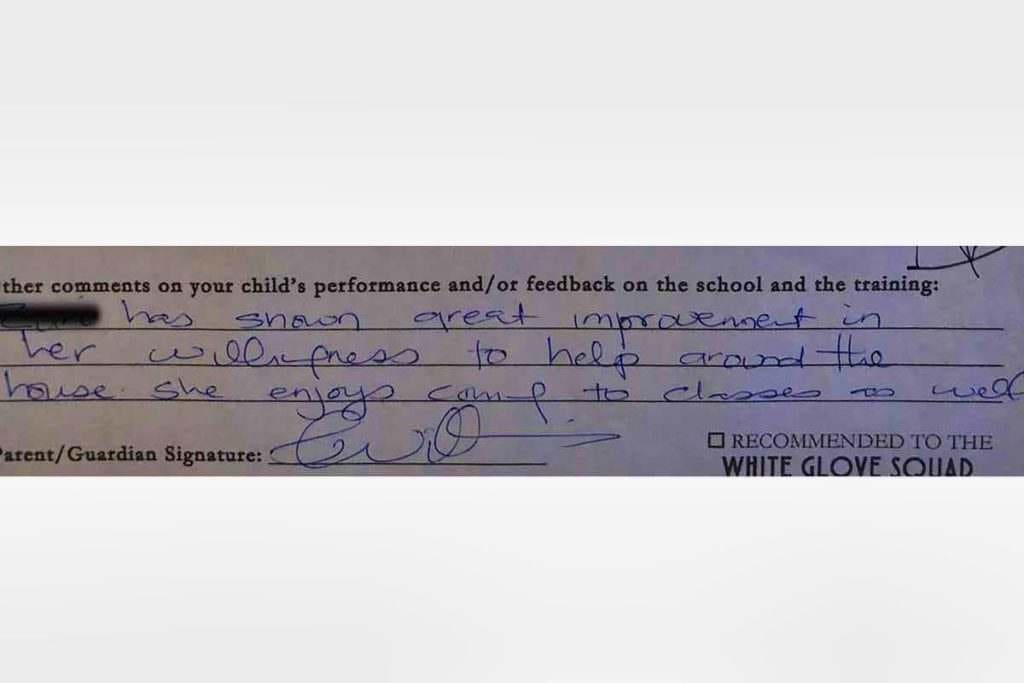 ther comments on your child's performance and/or feedback on the school and the training:
has shown great improvement in
her willingness to help around the
house. she enjoys coming to classes as well
Parent/Guardian Signature:
☐ RECOMMENDED TO THE
WHITE GLOVE SQUAD